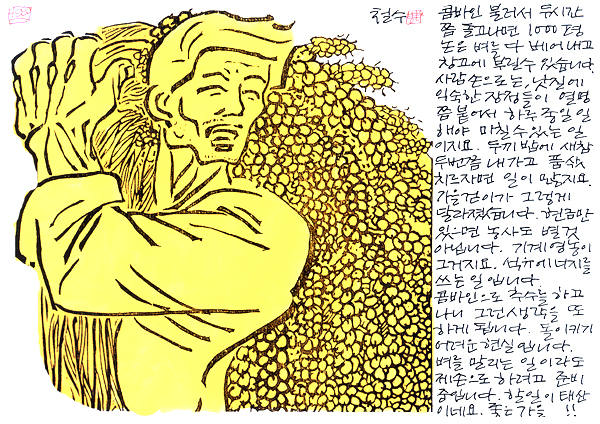 철수
콤바인 불러서 두시간
쯤 돌고나면 1000평
논은 벼를 다 베어내고
창고에 부릴수 있습니다.
사람 손으로는, 낫질에
익숙한 장정들이 열명
쯤 붙어서 하루 종일 일
해야 마칠수 있는 일
이지요. 두끼 밥에 새참
두번쯤 내가고 품삯
치르자면 일이 많지요.
가을걷이가 그렇게
달라졌습니다. 현금만
있으면 농사도 별것
아닙니다. 기계영농이
그거지요. 석유에너지를
쓰는 일입니다.
콤바인으로 추수를 하고
나니 그런 생각을 또
하게 됩니다. 돌이키기
어려운 현실입니다.
벼를 말리는 일이라도
제손으로 하려고 준비
중입니다. 할일이 태산
이네요. 좋은 가을 !!